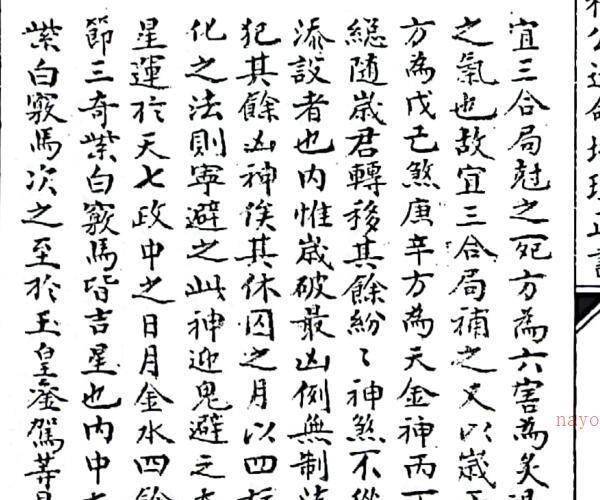 宜三合局尅之死方為六害為炙
之氣也故宜三合局補之又以歲
方為戊己煞庚辛方為天金神丙丁
縂随歲君轉移其餘紛〻神煞不
添設者也内惟歲破最凶例無制法
犯其餘凶神俟其休囚之月以四
化之法則寜避之此神迎鬼避之
星運於天七政中之日月金水四餘
節三奇紫白竅馬皆吉星也内中
紫白竅馬次之至於玉皇鑾駕䓁
nayo